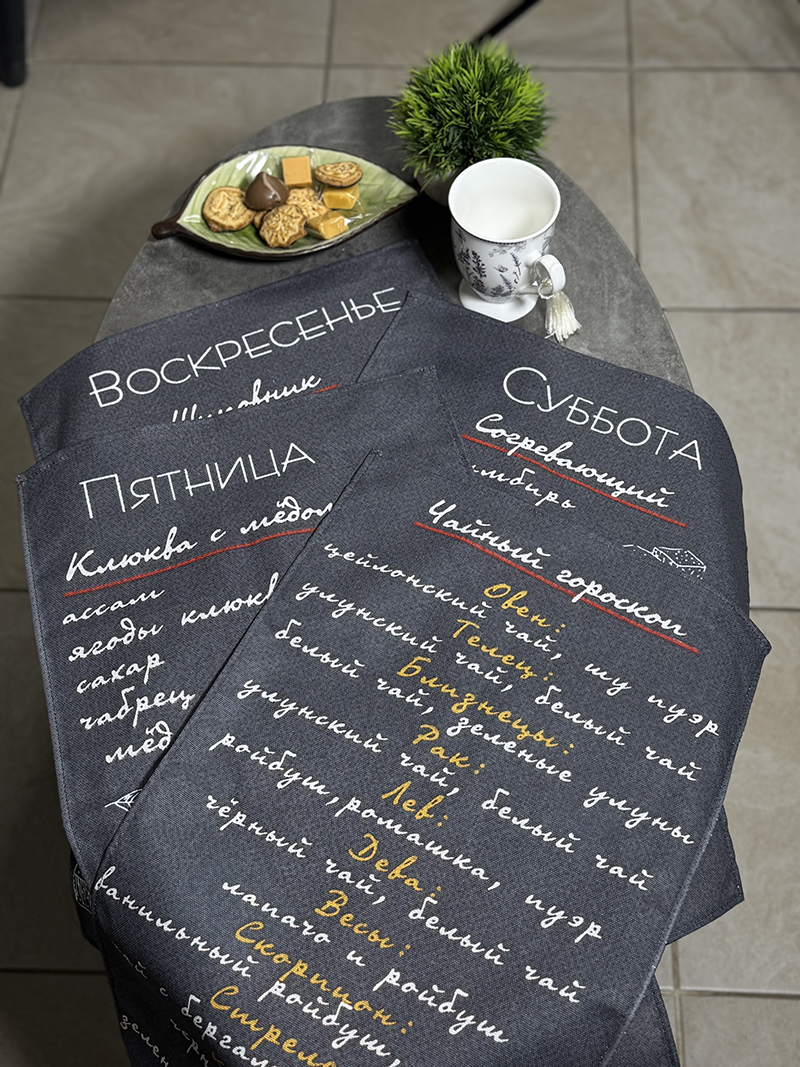 Воскресенье
Шиповник
Суббота
Согревающий
имбирь
Пятница
Клюква с мёдом
ассам
ягоды клюкв
сахар
чабрец
мёд
Чайный гороскоп
Овен:
цейлонский чай, шу пуэр
Телец:
улунский чай, белый чай
Близнецы:
белый чай, зеленые улуны
Рак:
улунский чай, белый чай
Лев:
ройбуш, ромашка, пуэр
Дева:
чёрный чай, белый чай
Весы:
лапачо и ройбуш
Скорпион:
ванильный ройбуш,
Стрел
с бергам